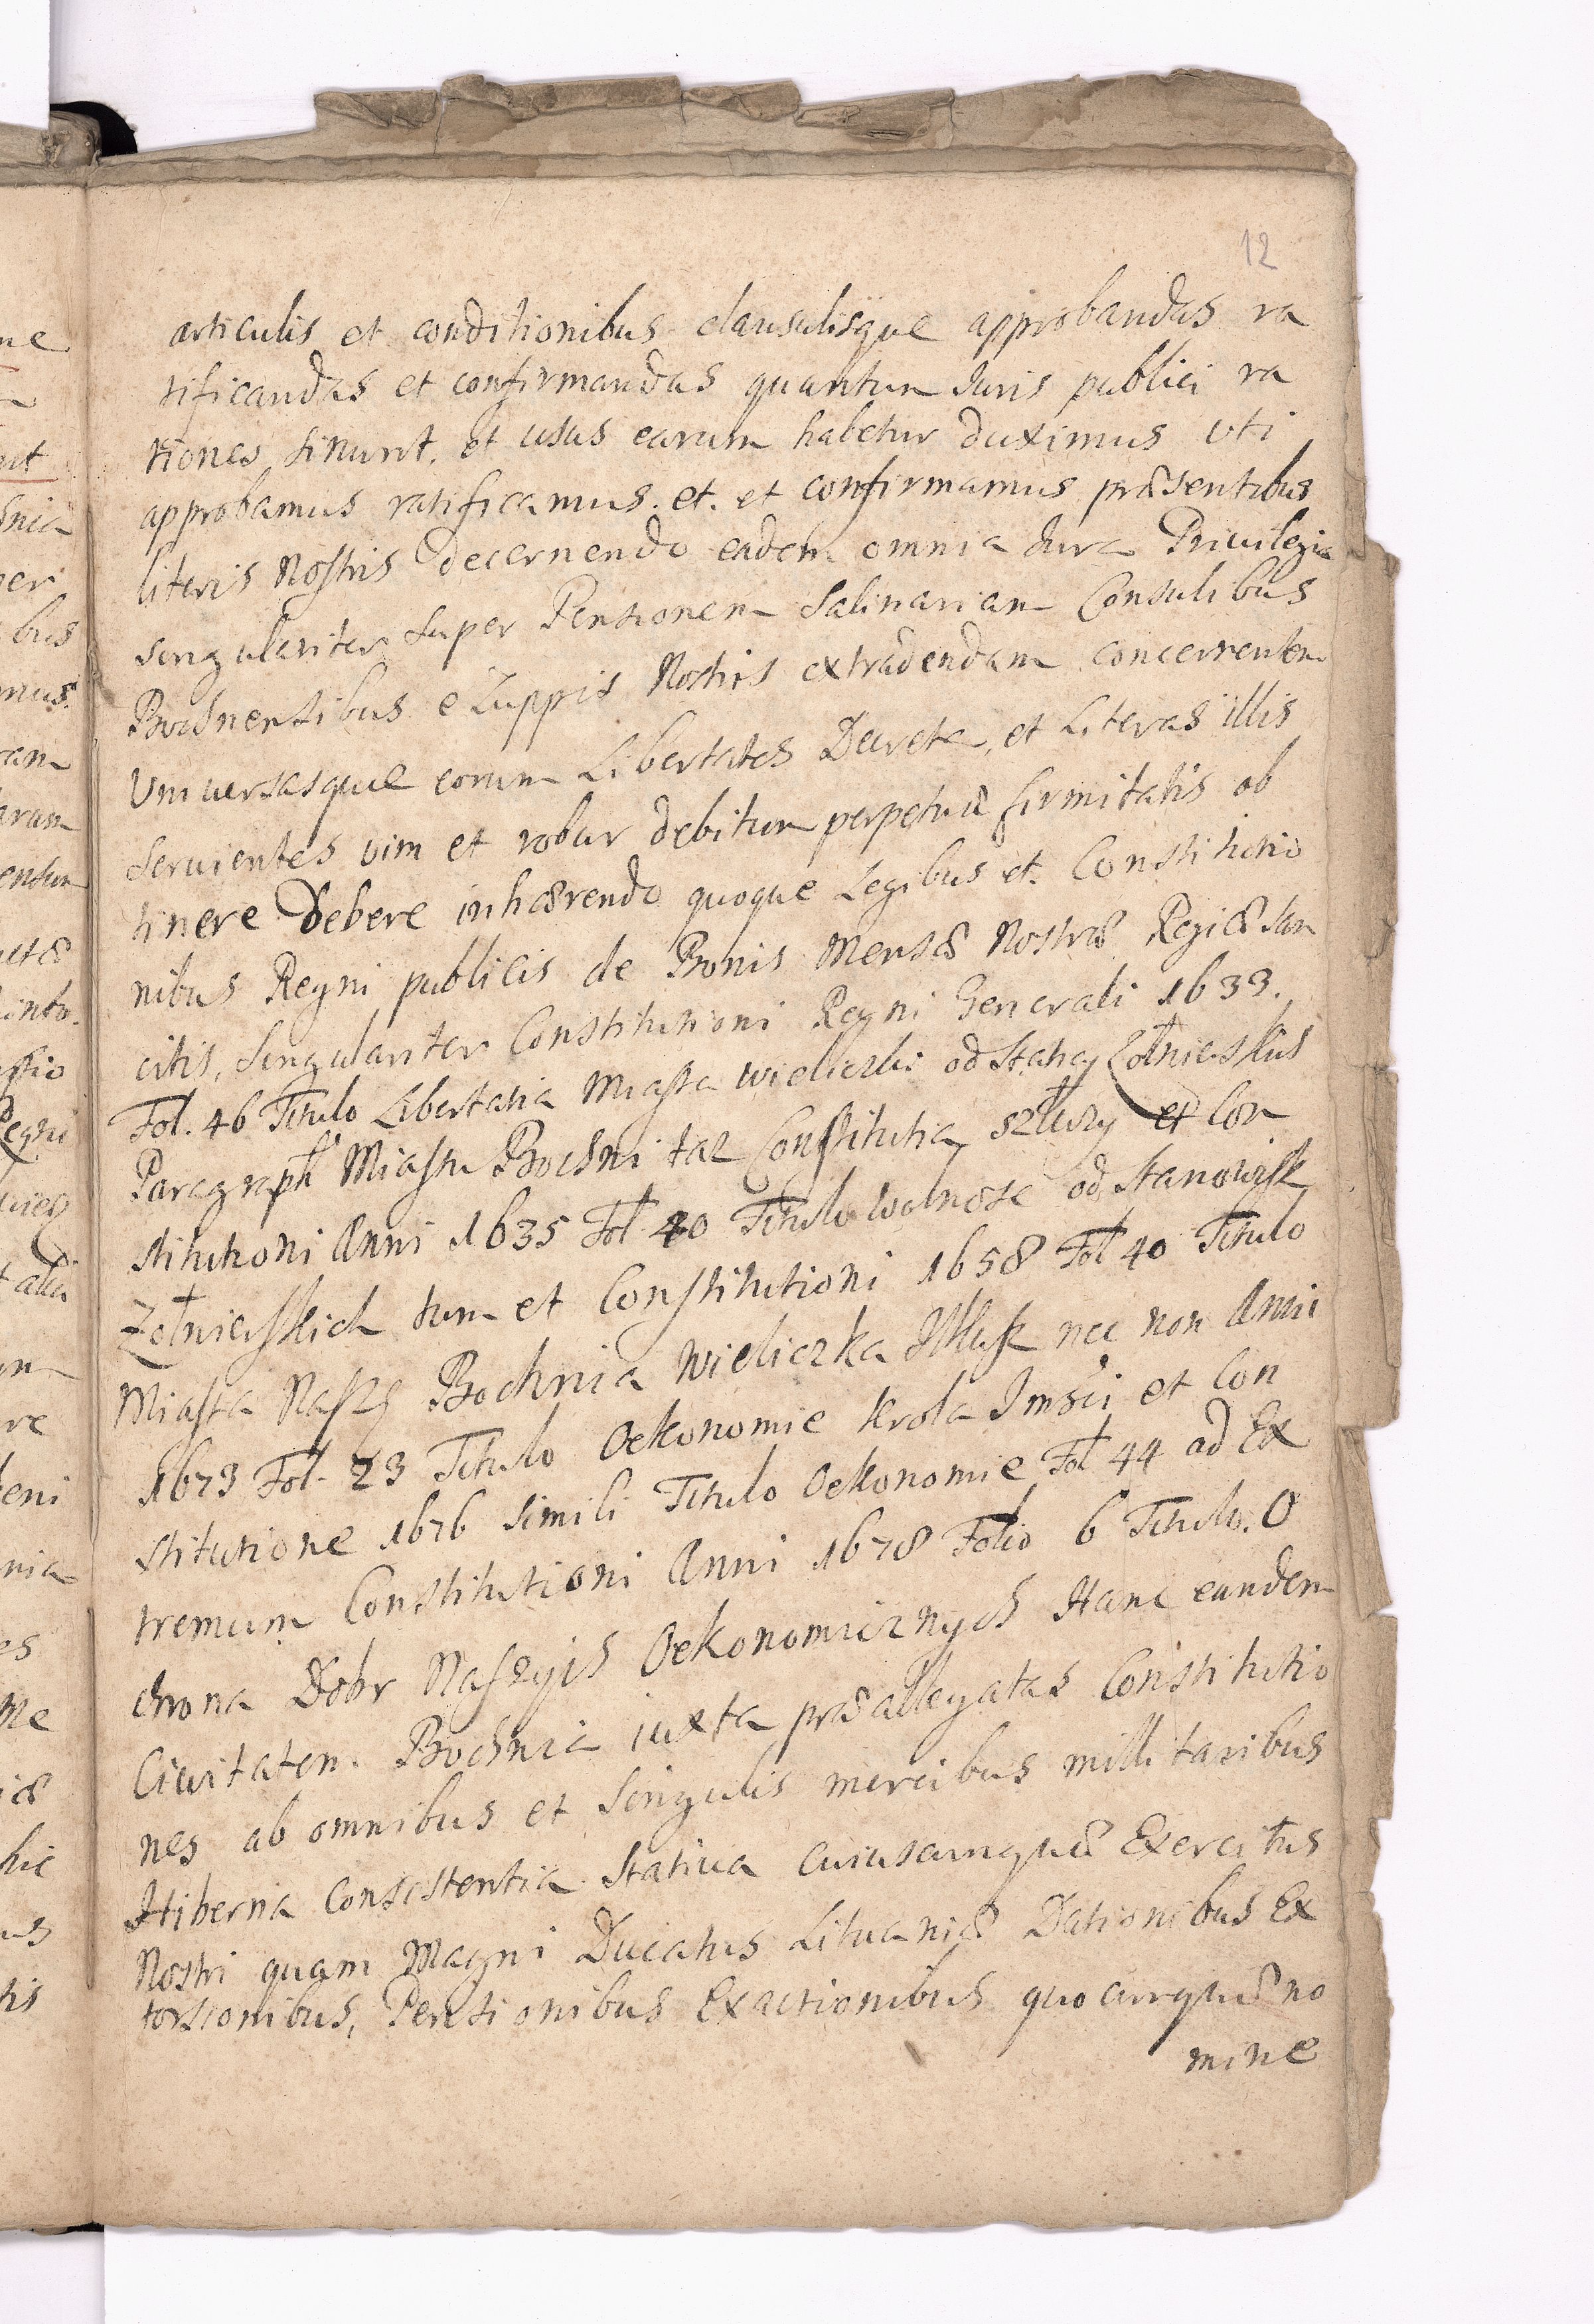 12
articulis et conditionibus clausulisque approbandas ra
tificandas et confirmandas quantum Juris publici ra
tiones sinunt. et usus earum habetur duximus uti
approbamus ratificamus. et. et confirmamus præsentibus
literis Nostris decernendo eadem omnia Jura Privilegia
singulariter super Pensionem Salinariam Consulibus
Bochnensibus e Zuppis Nostris extradendam concernentem
Universasque eorum Libertates Decreta, et Literas illis
servientes vim et robur debitum perpetuæ firmitatis ob
tinere debere inhærendo quoque Legibus et. Constitutio
nibus Regni publicis de Bonis Mensæ Nostræ Regiæ san
citis, singulariter Constitutioni Regni Generali 1633.
Fol. 46 Titulo Libertatia Miasta Wieliczki od Stacy Zołnierskies
Paragraph Miastu Bochni taz Constitutia służy et Con
stitutioni Anni 1635 Fol 40 Titulo wolnosc od Stanowisk
Zołnierskich tum et Constitutioni 1658 Fol 40 Titulo
Miasta Nasze Bochnia Wieliczka Ilkusk nec non Anni
1673 Fol. 23 Titulo Oekonomie Krola Jmści et Con
stitutione 1676 simili Titulo Oekonomie Fol 44 ad Ex
tremum Constitutioni Anni 1678 Folio 6 Titulo. O
chrona Dobr Naszych Oekonomicznych Hanc eandem
Civitatem. Bochnia iuxta præallegatas Constitutio
nes ab omnibus et singulis mercibus millitaribus
Hiberna Consistentia Stativa cuiuscumquæ Exercitus
Nostri quam Magni Ducatus Lituaniæ Dationibus Ex
torsionibus, Pensionibus Exactionibus quocumquæ no
mine